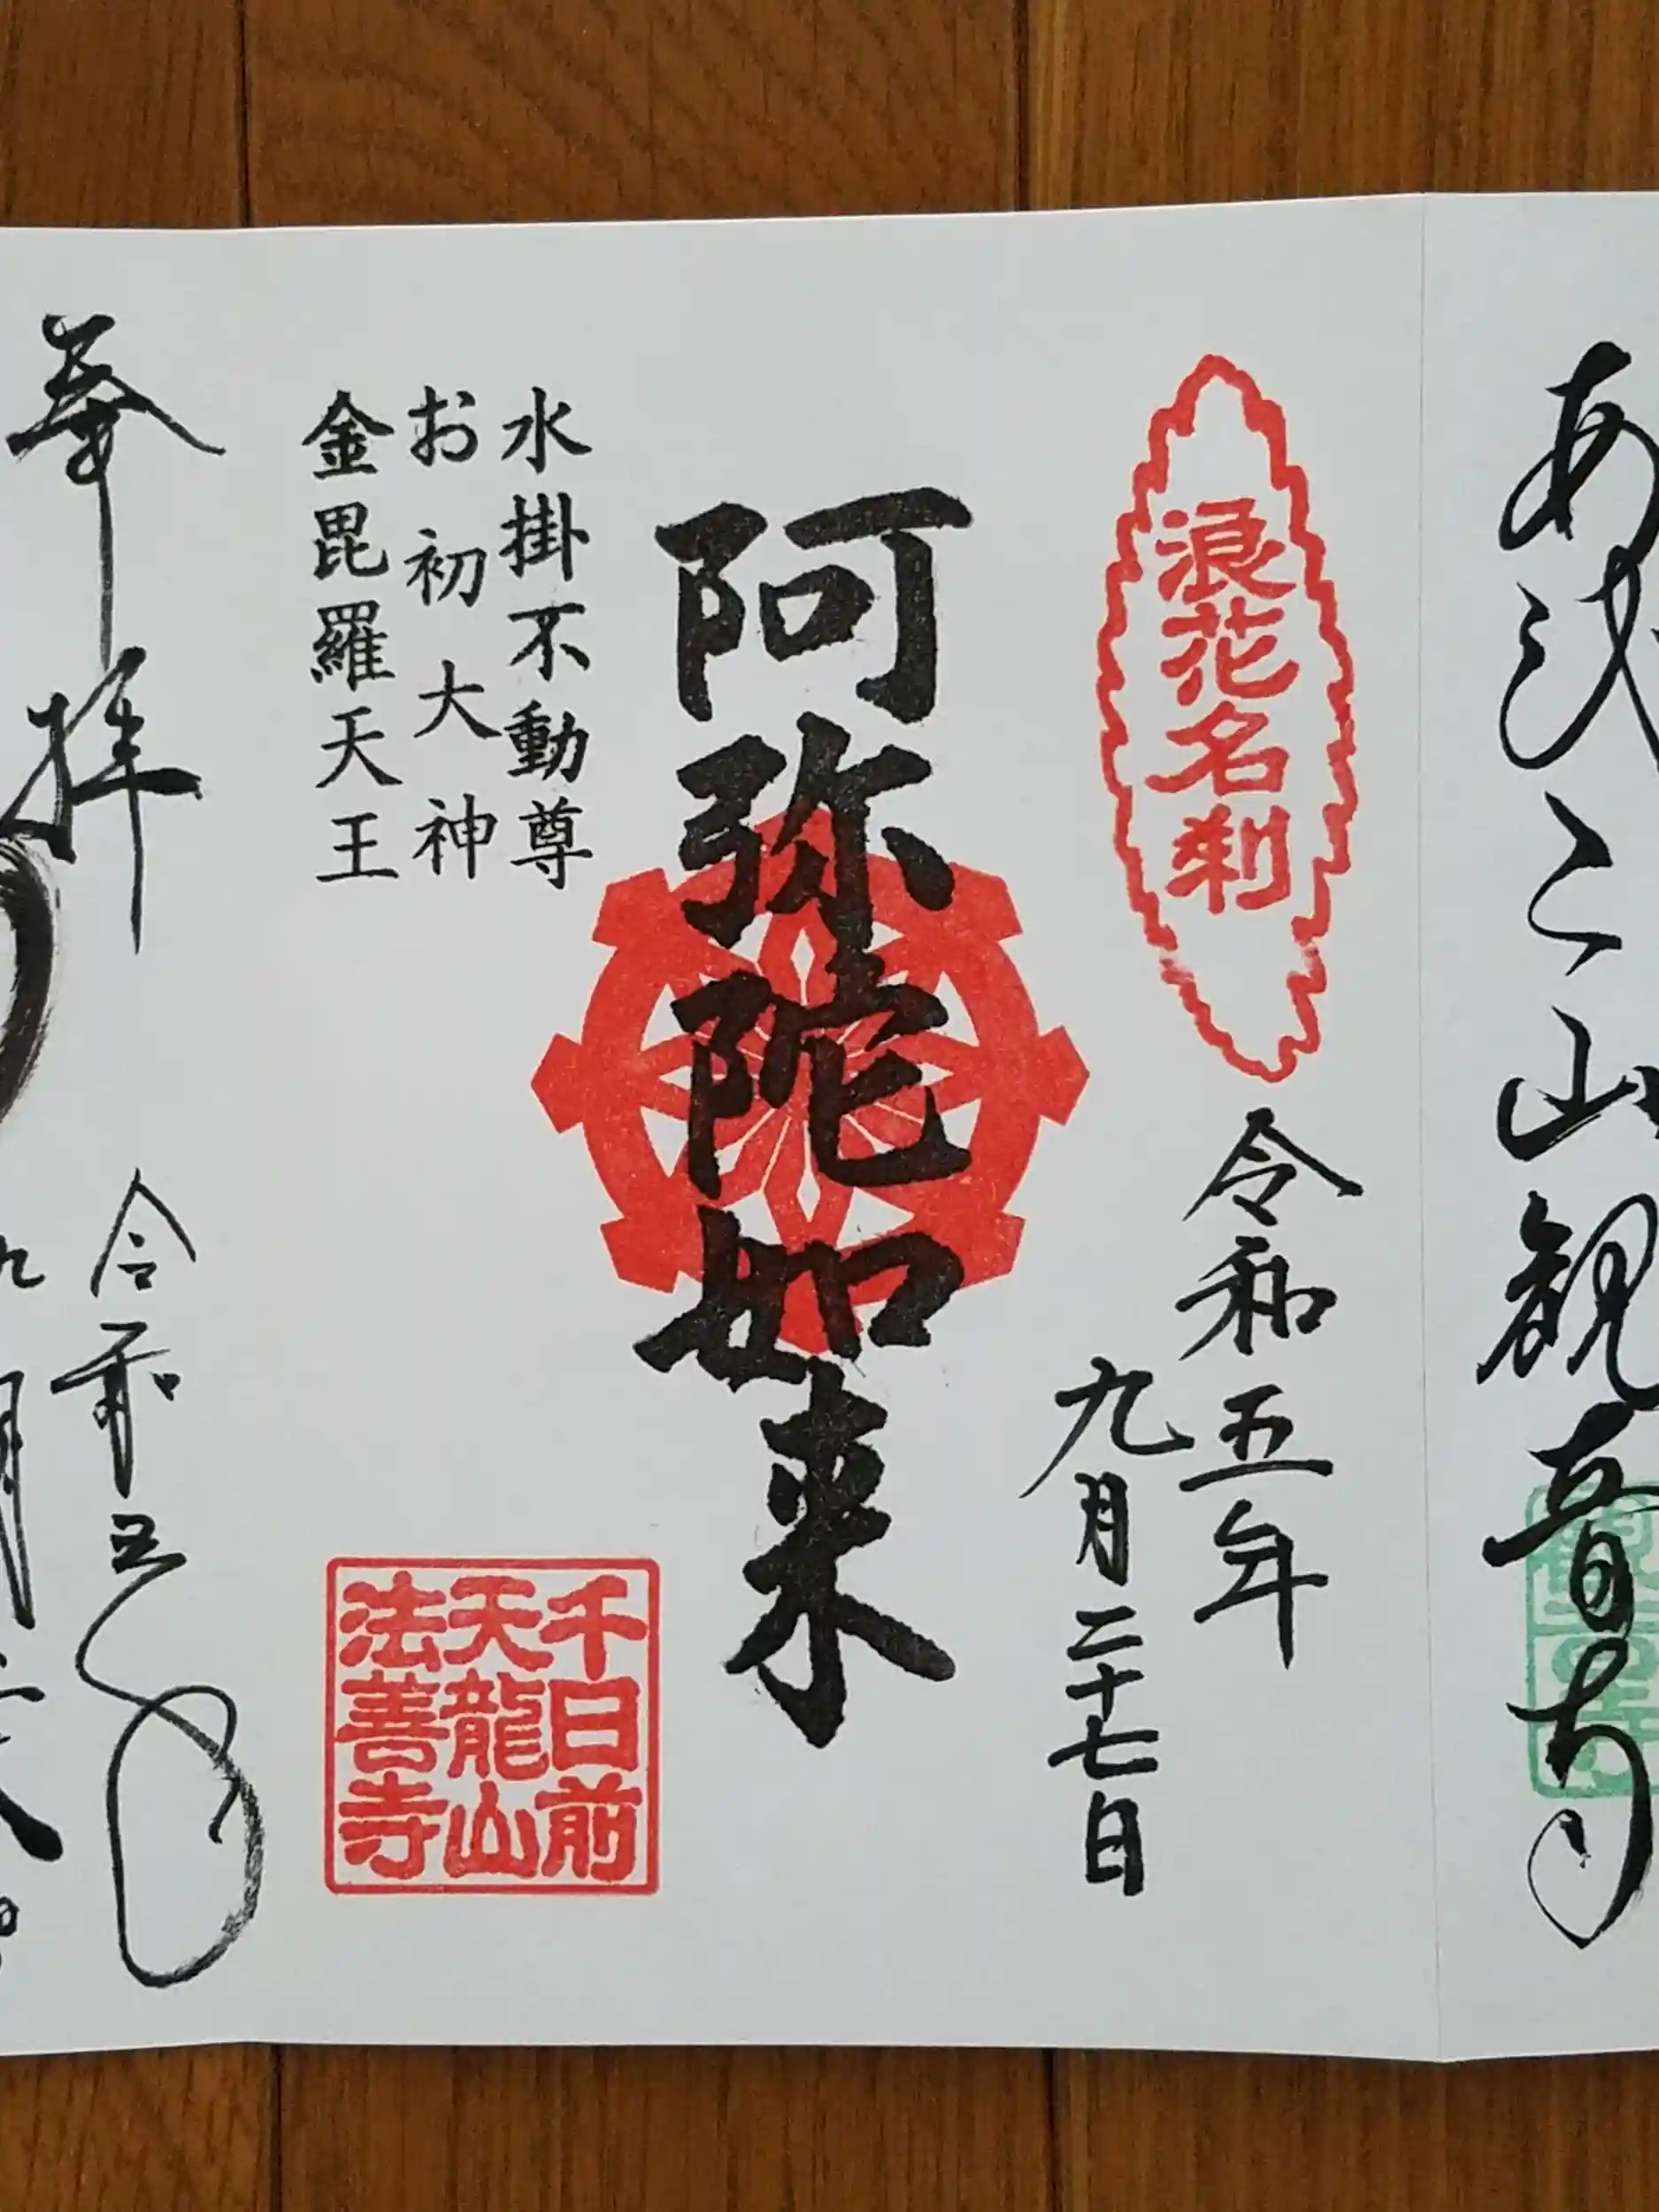 浪花名刹
令和五年
九月二十七日
阿弥陀如来
水掛不動尊
お初大神
金毘羅天王
千日前
天龍山
法善寺
奉拝
令和五
山観音寺